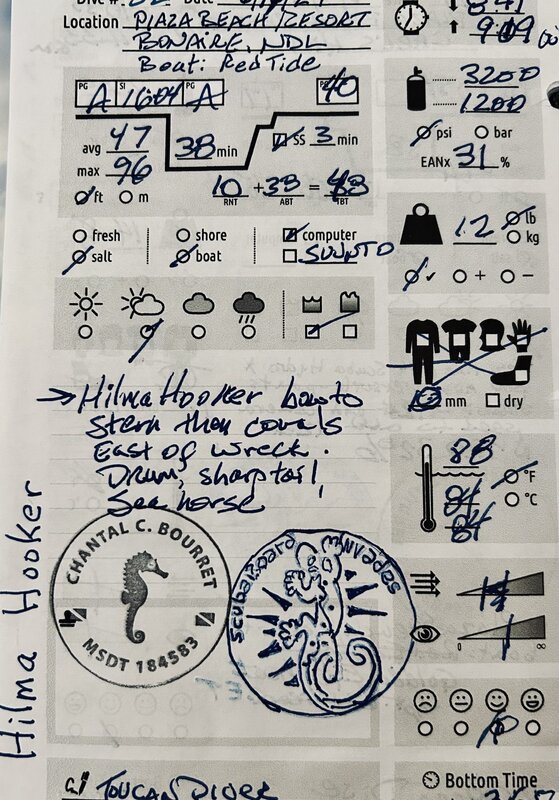 Dive #: Date
Location PLAZA BEACH/RESORT
BONAIRE, NDL
Boat: Red Tide
841
3200
1200
psi bar
EANx 31 %
PG SI PG PG
A A 40
avg 47
max 96
38 min
SS 3 min
ft m
10 + 38 = 48
RNT ABT TBT
12 lb
kg
✓ + −
fresh shore computer
salt boat SUUNTO
mm dry
→ Hilma Hooker bow to
stern then corals
East of wreck.
Drum, sharptail,
Seahorse
88
84
84
°F
°C
Hilma Hooker
CHANTAL C. BOURRET
MSDT 184583
0 ∞
TOUCAN DIVER
Bottom Time